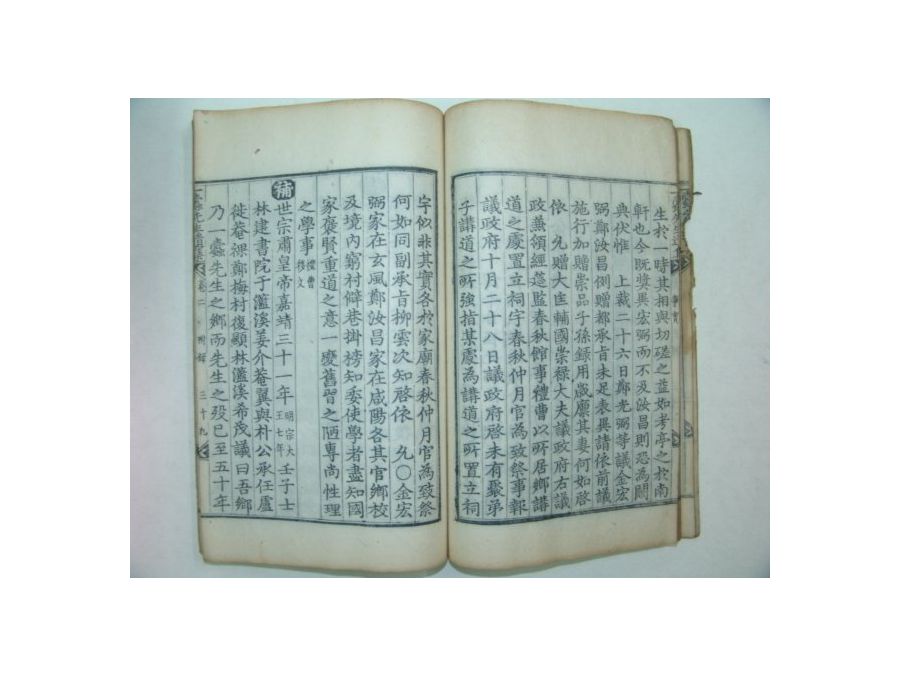 生於一時其相與切磋之益如考亭之於南
軒也今旣奬異宏弼而不及汝昌則恐爲闕
典伏惟 上裁二十六日鄭光弼等議金宏
弼鄭汝昌例贈都承旨未足表異請依前議
施行加贈崇品子孫錄用歲廩其妻何如啓
依 允贈大匡輔國崇祿大夫議政府右議
政兼領經筵監春秋館事禮曹以所居鄉講
道之處置立祠宇春秋仲月官爲致祭事報
議政府十月二十八日議政府啓未有聚弟
子講道之所強指某處爲講道之所置立祠
宇似非其實各於家廟春秋仲月官爲致祭
何如同副承旨柳雲次知啓依 允○金宏
弼家在玄風鄭汝昌家在咸陽各其官鄉校
及境內窮村僻巷掛榜知委使學者盡知國
家褒賢重道之意一慶舊習之陋專尚性理
之學事 禮曹移文
補 世宗肅皇帝嘉靖三十一年 明宗大王七年 壬子士
林建書院于灆溪姜介菴翼與朴公承任盧
徙菴祼鄭梅村復顯林灆溪希茂議曰吾鄉
乃一蠹先生之鄉而先生之歿已至五十年
一蠹先生遺集 卷二 附錄 三十九